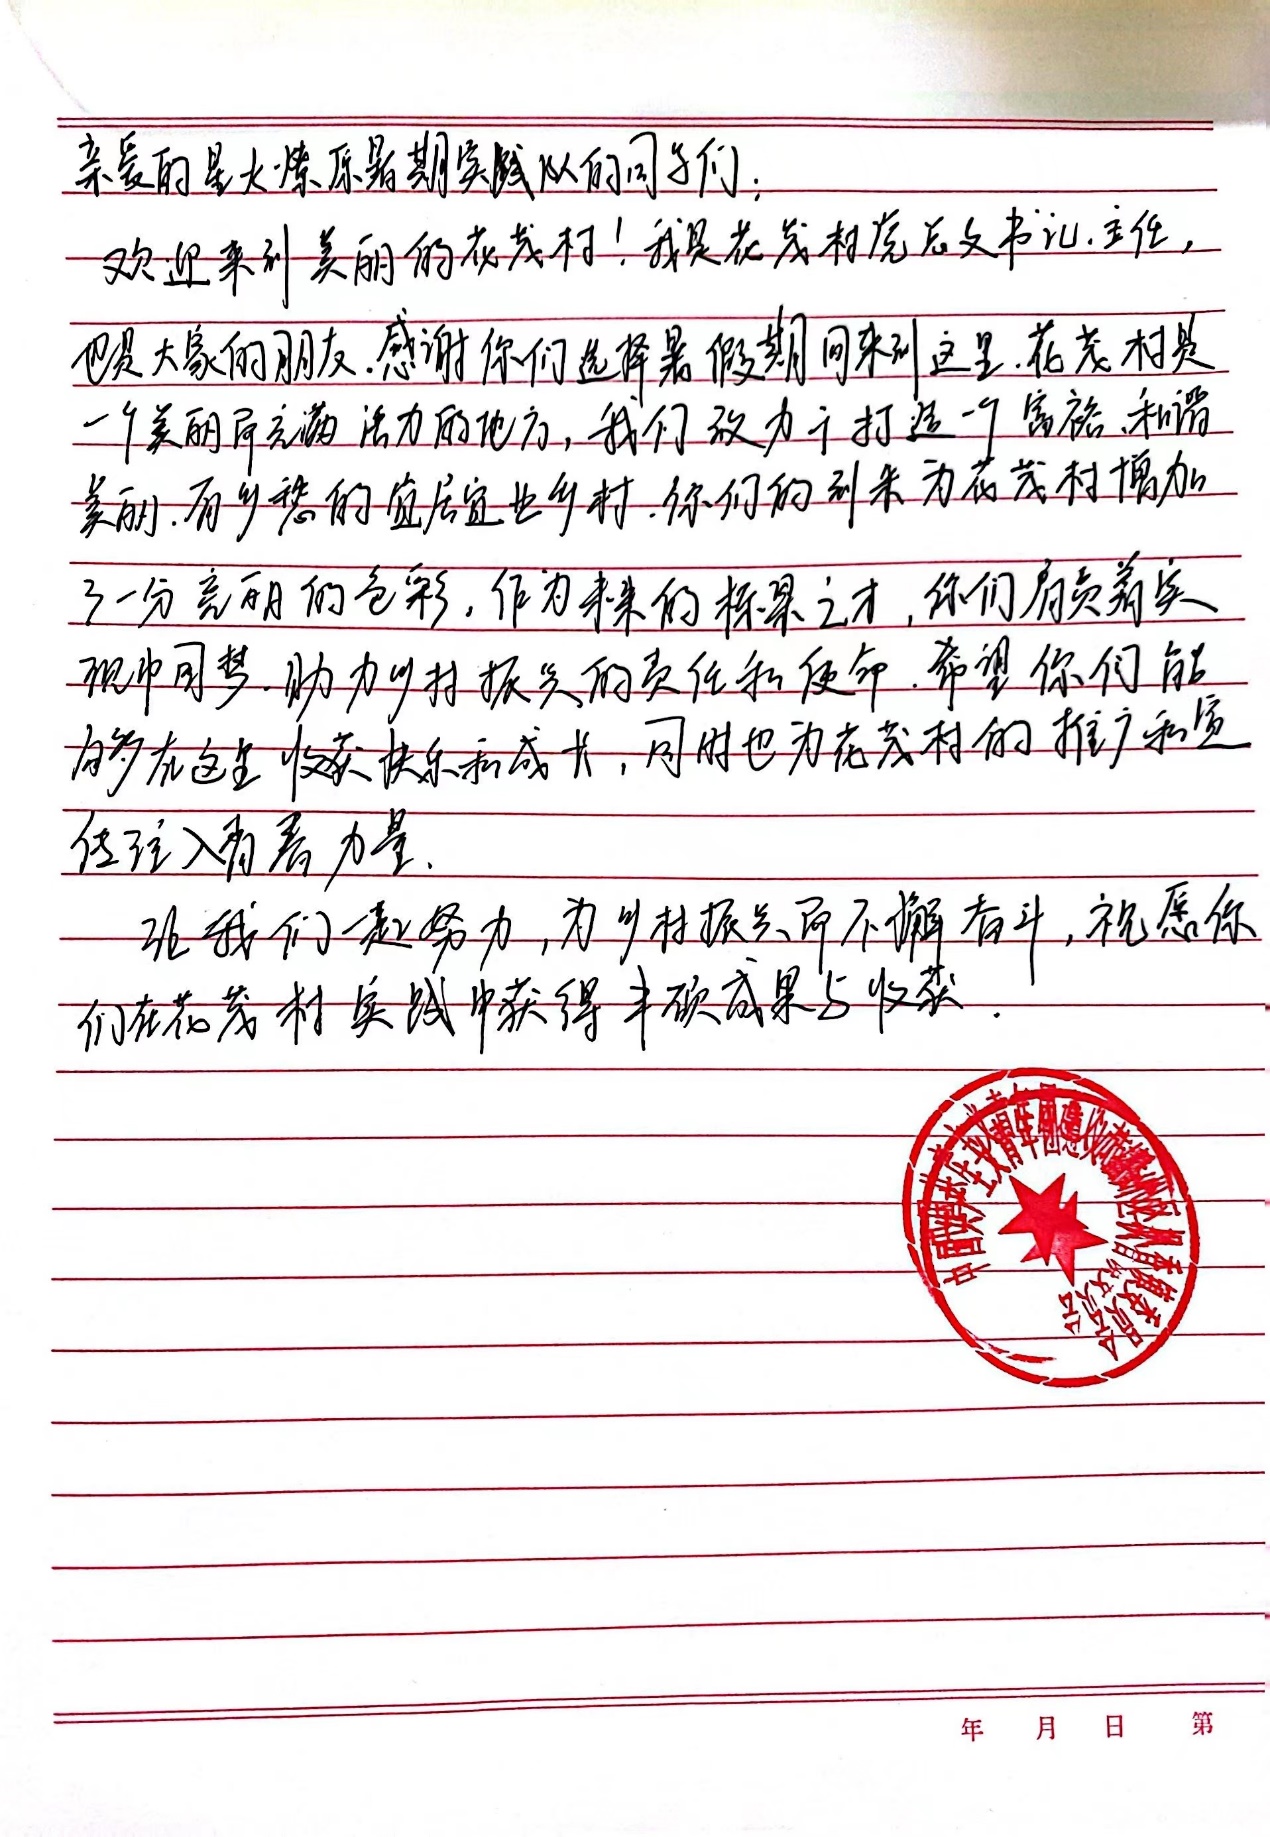 亲爱的星火燎原暑期实践队的同学们：
欢迎来到美丽的花茂村！我是花茂村党总支书记、主任，
也是大家的朋友.感谢你们选择暑假期间来到这里.花茂村是
一个美丽而充满活力的地方，我们致力于打造一个富裕、和谐
美丽、有乡愁的宜居宜业乡村.你们的到来为花茂村增加
了一分亮丽的色彩，作为未来的栋梁之才，你们肩负着实
现中国梦、助力乡村振兴的责任和使命.希望你们能
够在这里收获快乐和成长，同时也为花茂村的推广和宣
传注入青春力量.
让我们一起努力，为乡村振兴而不懈奋斗，祝愿你
们在花茂村实践中获得丰硕成果与收获.
年 月 日 第